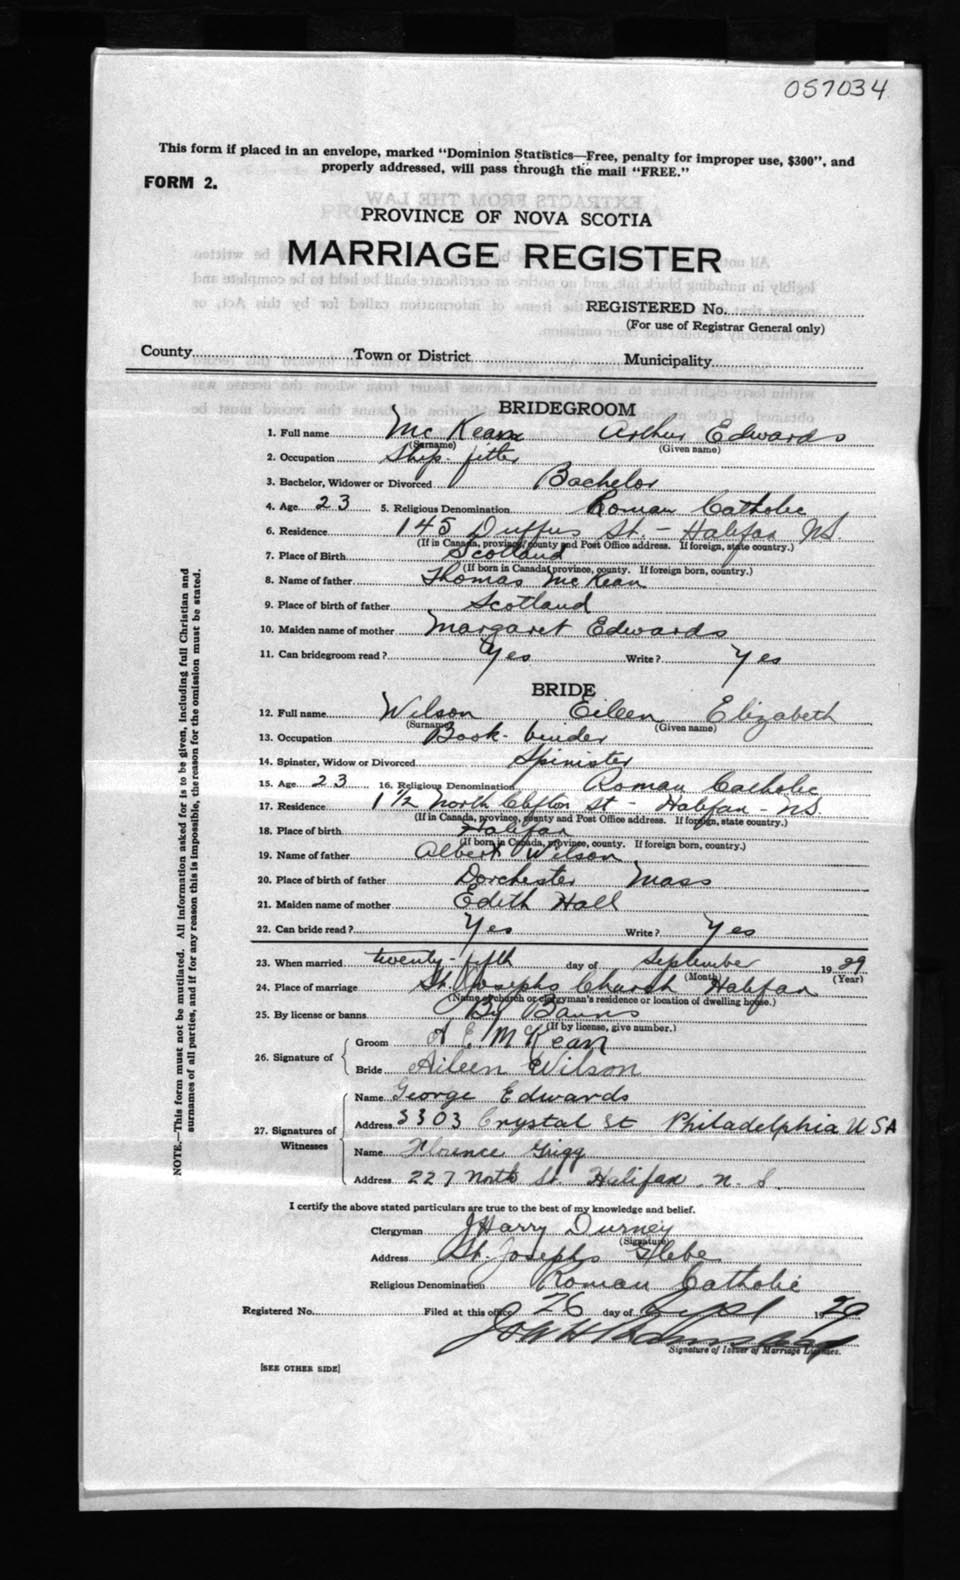 057034
This form if placed in an envelope, marked "Dominion Statistics—Free, penalty for improper use, $300", and
properly addressed, will pass through the mail "FREE."
FORM 2.
PROVINCE OF NOVA SCOTIA
MARRIAGE REGISTER
REGISTERED No.
(For use of Registrar General only)
County Town or District Municipality
BRIDEGROOM
1. Full name Mc Kean Arthur Edwards
(Surname) (Given name)
2. Occupation Ship-fitter
3. Bachelor, Widower or Divorced Bachelor
4. Age 23 5. Religious Denomination Roman Catholic
6. Residence 145 Duffus St - Halifax NS.
(If in Canada, province, county and Post Office address. If foreign, state country.)
7. Place of Birth Scotland
(If born in Canada, province, county. If foreign born, country.)
8. Name of father Thomas McKean
9. Place of birth of father Scotland
10. Maiden name of mother Margaret Edwards
11. Can bridegroom read? Yes Write? Yes
BRIDE
12. Full name Wilson Eileen Elizabeth
(Surname) (Given name)
13. Occupation Book-binder
14. Spinster, Widow or Divorced Spinister
15. Age 23 16. Religious Denomination Roman Catholic
17. Residence 1 1/2 North Clifton St - Halifax - NS
(If in Canada, province, county and Post Office address. If foreign, state country.)
18. Place of birth Halifax
(If born in Canada, province, county. If foreign born, country.)
19. Name of father Albert Wilson
20. Place of birth of father Dorchester Mass
21. Maiden name of mother Edith Hall
22. Can bride read? Yes Write? Yes
23. When married twenty-fifth day of September 1929
(Month) (Year)
24. Place of marriage St. Josephs Church Halifax
(Name of church or clergyman's residence or location of dwelling house.)
25. By license or banns By Banns
(If by license, give number.)
26. Signature of Groom A E McKean
Bride Aileen Wilson
27. Signatures of Witnesses Name George Edwards
Address 3303 Crystal St Philadelphia USA
Name Florence Grigg
Address 227 North St. Halifax. N. S.
I certify the above stated particulars are true to the best of my knowledge and belief.
Clergyman J Harry Durney
(Signature)
Address St. Josephs Glebe
Religious Denomination Roman Catholic
Registered No. Filed at this office 26 day of Sept 1929
Signature of Issuer of Marriage Licenses.
[SEE OTHER SIDE]
NOTE.—This form must not be mutilated. All information asked for is to be given, including full Christian and
surnames of all parties, and if for any reason this is impossible, the reason for the omission must be stated.